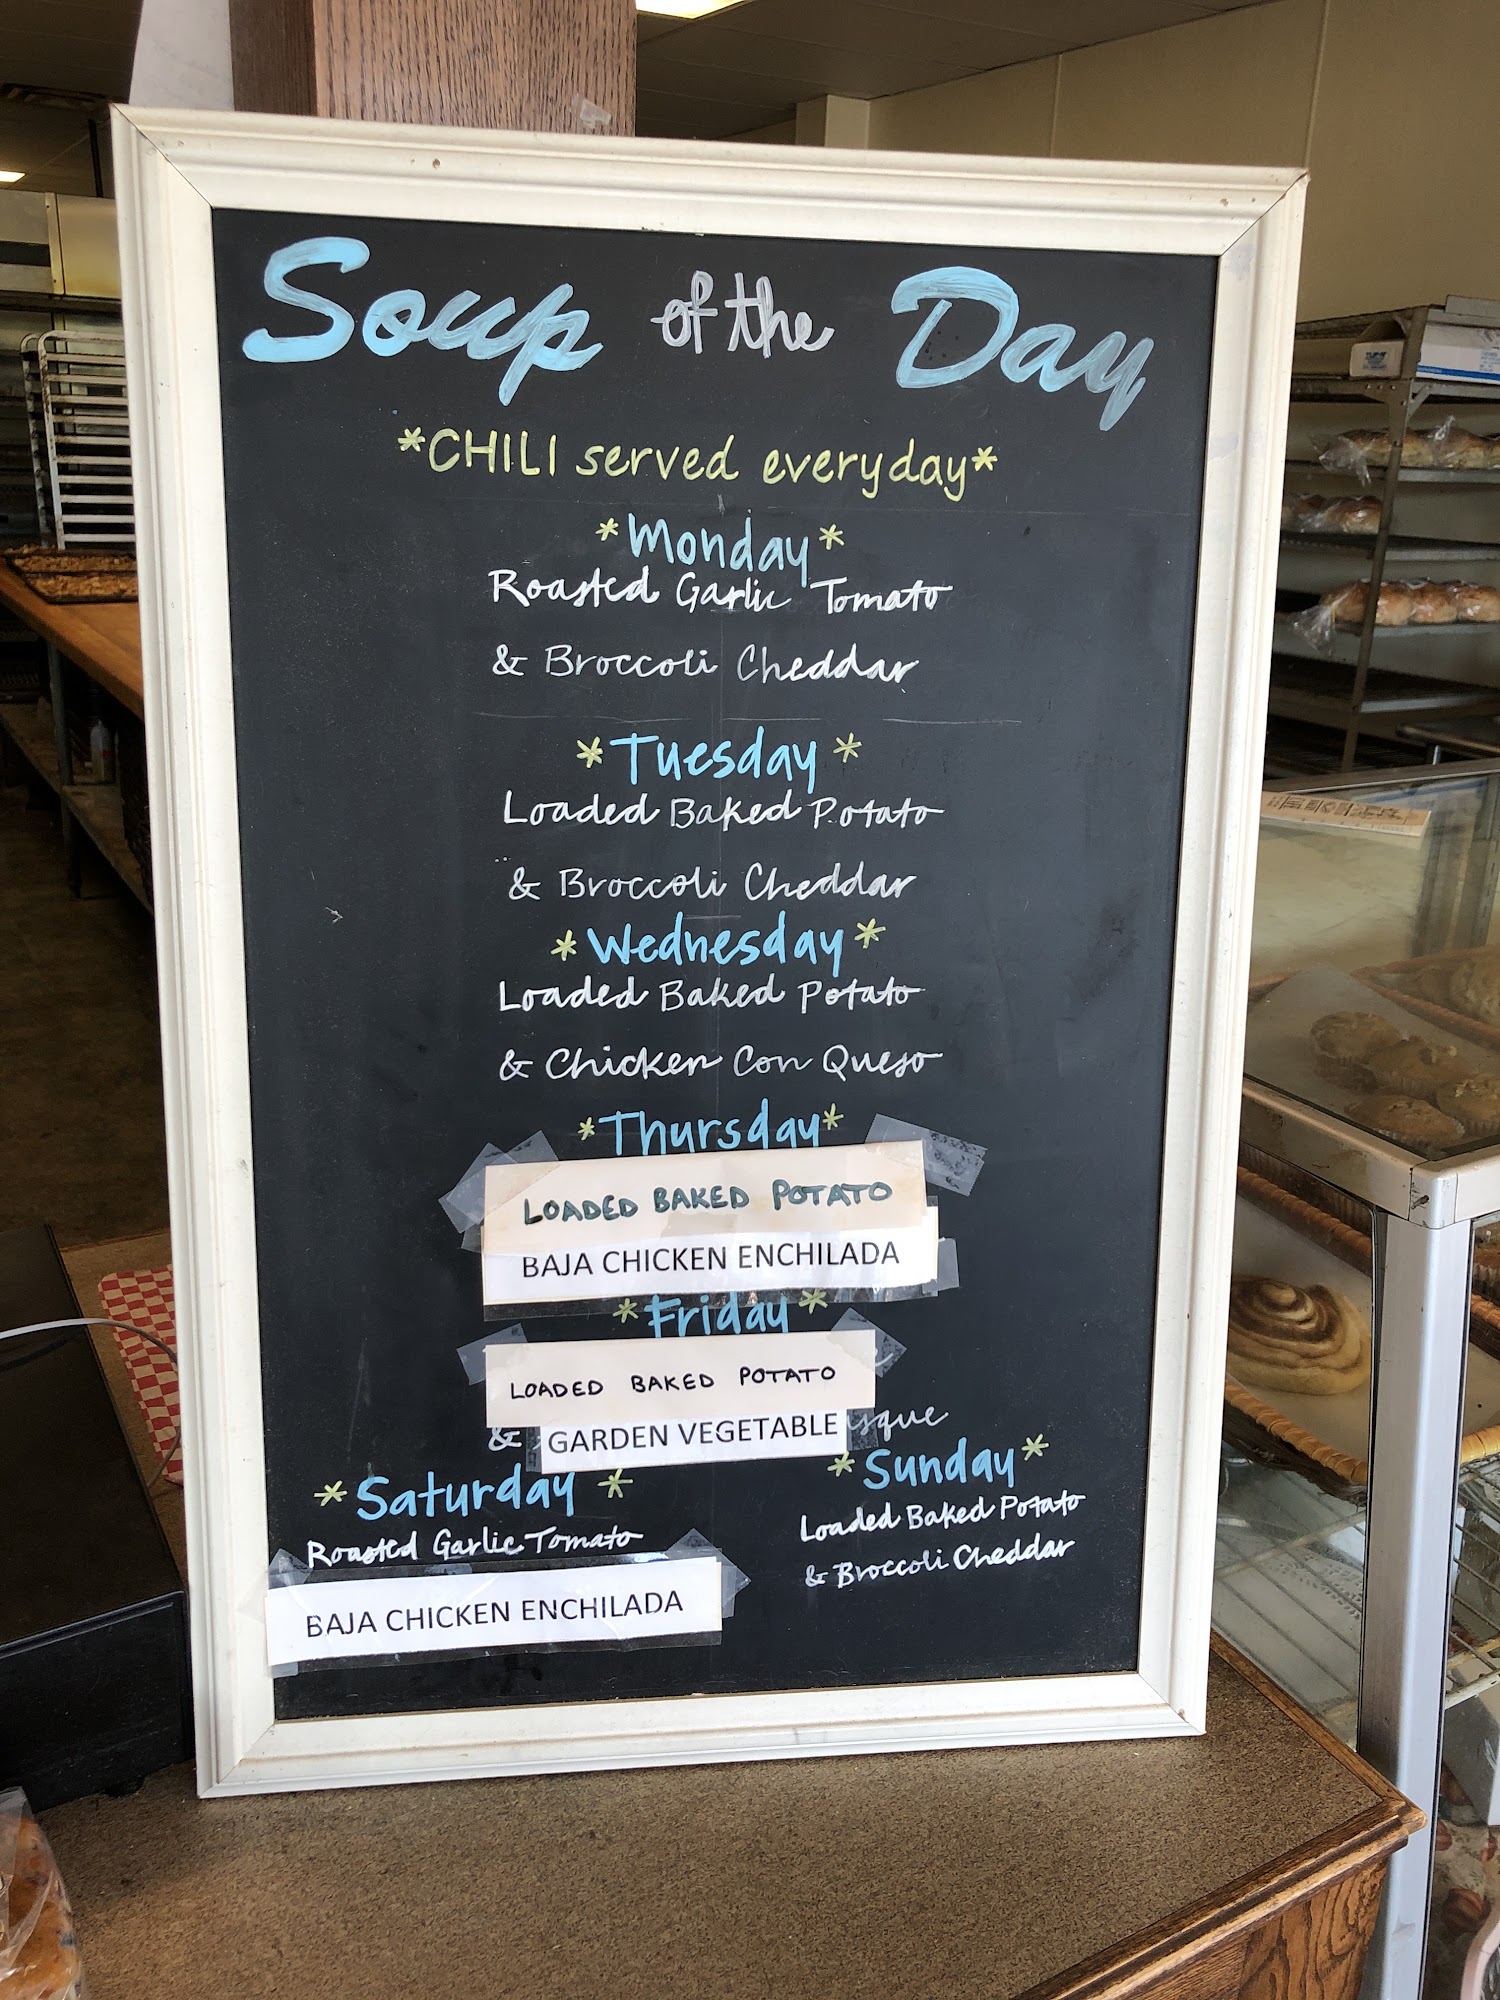 Soup of the Day
*CHILI served everyday*
*Monday*
Roasted Garlic Tomato
& Broccoli Cheddar
*Tuesday*
Loaded Baked Potato
& Broccoli Cheddar
*Wednesday*
Loaded Baked Potato
& Chicken Con Queso
*Thursday*
LOADED BAKED POTATO
BAJA CHICKEN ENCHILADA
*Friday*
LOADED BAKED POTATO
& GARDEN VEGETABLE
*Saturday*
Roasted Garlic Tomato
BAJA CHICKEN ENCHILADA
*Sunday*
Loaded Baked Potato
& Broccoli Cheddar